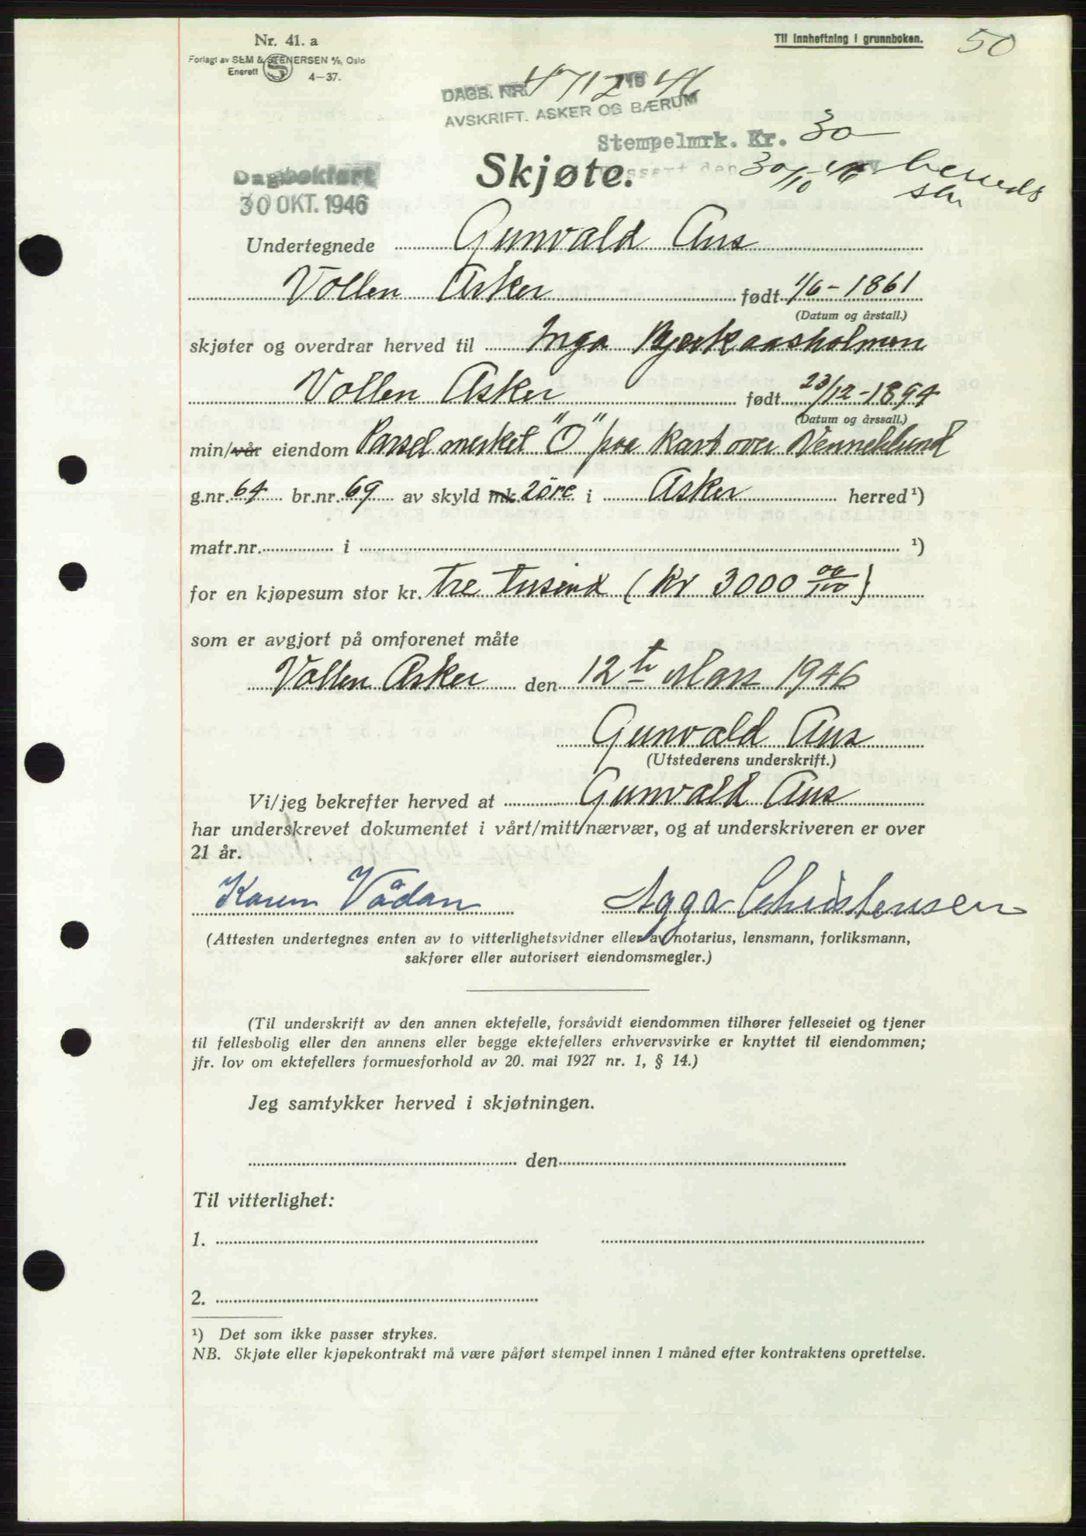 Nr. 41. a
Forlagt av SEM & STENERSEN A/S, Oslo
Enerett
4-37.
Til innheftning i grunnboken.
50
DAGB. NR. 4712 1946
AVSKRIFT. ASKER OG BÆRUM
Stempelmrk. Kr. 30
Skjøte.
30/10 46
Dagbokført
30 OKT. 1946
Undertegnede Gunvald Aus
Vollen Asker født 1/6-1861
(Datum og årstall.)
skjøter og overdrar herved til Inga Bjerkaasholmen
Vollen Asker født 23/12-1894
(Datum og årssall.)
min/vår eiendom Parsel merket "O" paa kart over Vennelund
g.nr. 64 br.nr. 69 av skyld mk 2 øre i Asker herred ¹)
matr.nr. i ¹)
for en kjøpesum stor kr. tre tusend (Kr 3000 00/100)
som er avgjort på omforenet måte
Vollen Asker den 12te Mars 1946
Gunvald Aus
(Utstederens underskrift.)
Vi/jeg bekrefter herved at Gunvald Aus
har underskrevet dokumentet i vårt/mitt nærvær, og at underskriveren er over
21 år.
Karen Vådan Agga Christensen
(Attesten undertegnes enten av to vitterlighetsvidner eller av notarius, lensmann, forliksmann,
sakfører eller autorisert eiendomsmegler.)
(Til underskrift av den annen ektefelle, forsåvidt eiendommen tilhører felleseiet og tjener
til fellesbolig eller den annens eller begge ektefellers erhvervsvirke er knyttet til eiendommen;
jfr. lov om ektefellers formuesforhold av 20. mai 1927 nr. 1, § 14.)
Jeg samtykker herved i skjøtningen.
den
Til vitterlighet:
1.
2.
¹) Det som ikke passer strykes.
NB. Skjøte eller kjøpekontrakt må være påført stempel innen 1 måned efter kontraktens oprettelse.